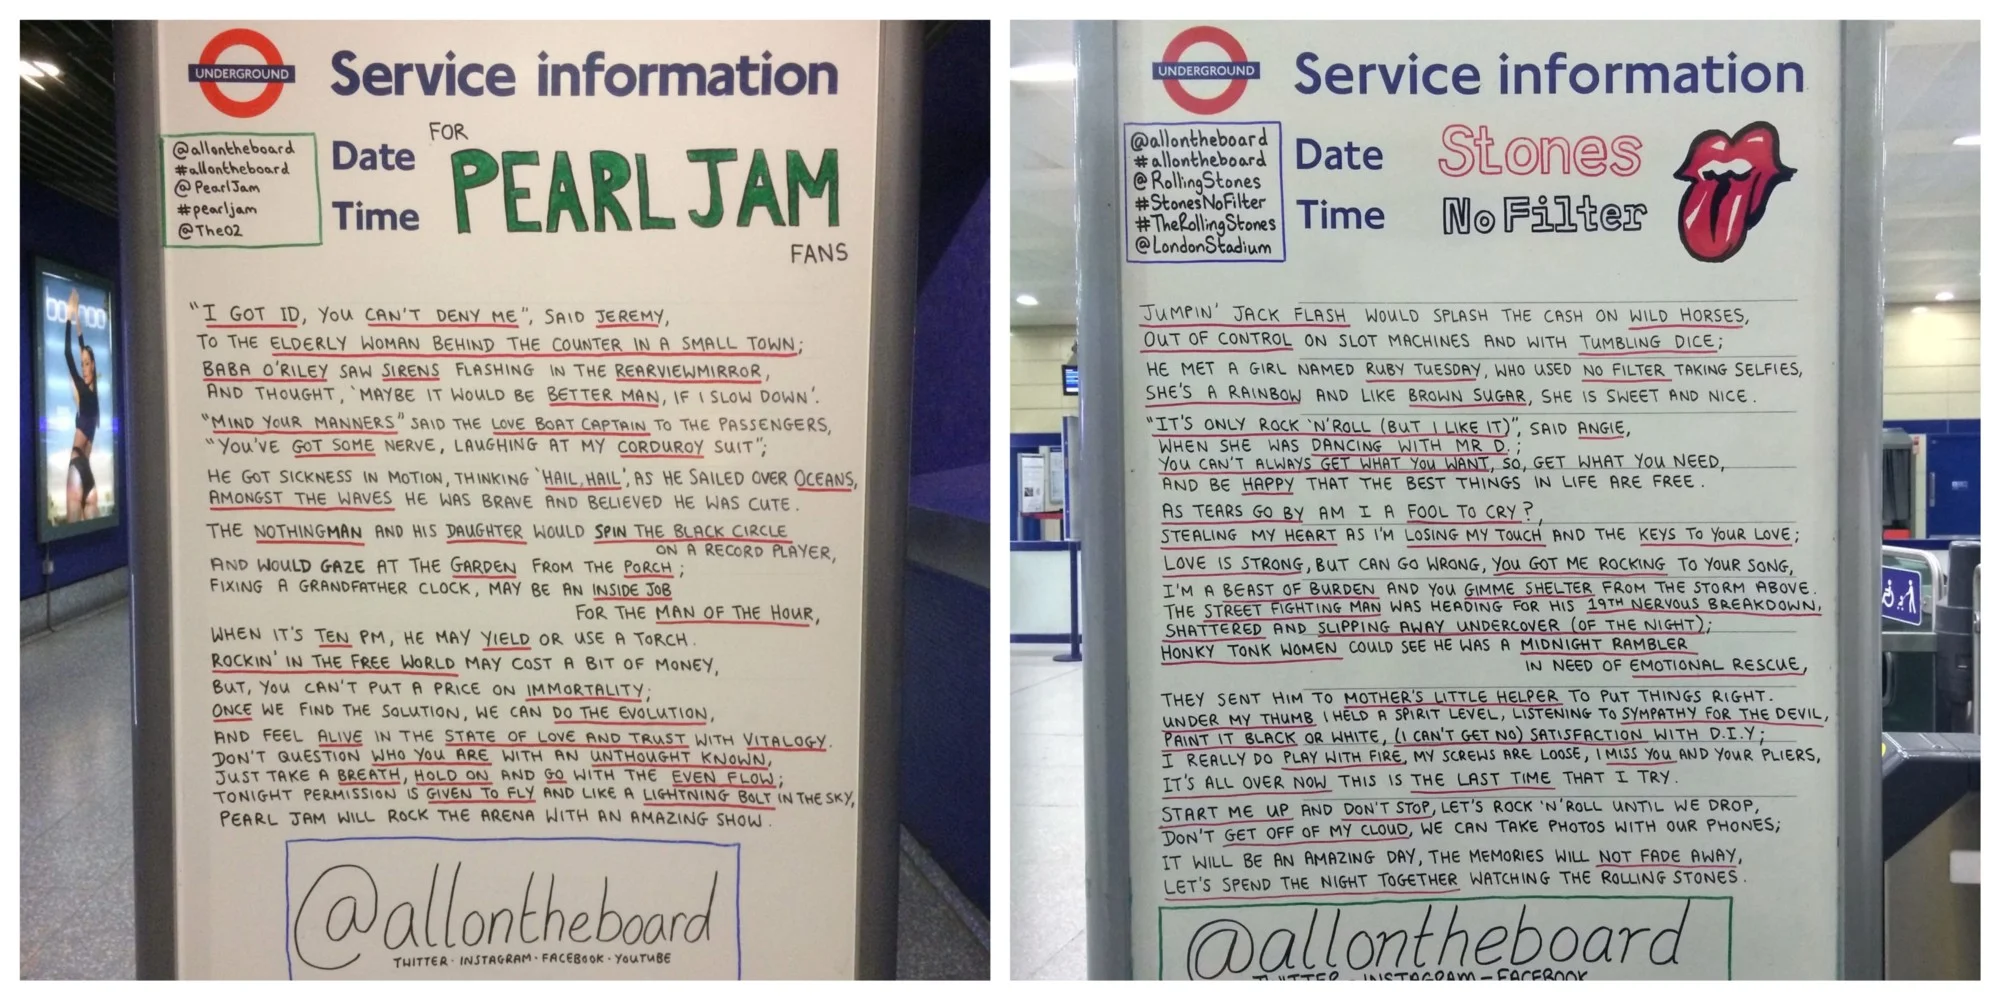 UNDERGROUND
Service information
@allontheboard
#allontheboard
@PearlJam
#pearljam
@TheO2
Date
Time
FOR
PEARL JAM
FANS
"I GOT ID, YOU CAN'T DENY ME", SAID JEREMY,
TO THE ELDERLY WOMAN BEHIND THE COUNTER IN A SMALL TOWN;
BABA O'RILEY SAW SIRENS FLASHING IN THE REARVIEWMIRROR,
AND THOUGHT, 'MAYBE IT WOULD BE BETTER MAN, IF I SLOW DOWN'.
"MIND YOUR MANNERS" SAID THE LOVE BOAT CAPTAIN TO THE PASSENGERS,
"YOU'VE GOT SOME NERVE, LAUGHING AT MY CORDUROY SUIT";
HE GOT SICKNESS IN MOTION, THINKING 'HAIL, HAIL', AS HE SAILED OVER OCEANS,
AMONGST THE WAVES HE WAS BRAVE AND BELIEVED HE WAS CUTE.
THE NOTHINGMAN AND HIS DAUGHTER WOULD SPIN THE BLACK CIRCLE
ON A RECORD PLAYER,
AND WOULD GAZE AT THE GARDEN FROM THE PORCH;
FIXING A GRANDFATHER CLOCK, MAY BE AN INSIDE JOB
FOR THE MAN OF THE HOUR,
WHEN IT'S TEN PM, HE MAY YIELD OR USE A TORCH.
ROCKIN' IN THE FREE WORLD MAY COST A BIT OF MONEY,
BUT, YOU CAN'T PUT A PRICE ON IMMORTALITY;
ONCE WE FIND THE SOLUTION, WE CAN DO THE EVOLUTION,
AND FEEL ALIVE IN THE STATE OF LOVE AND TRUST WITH VITALOGY.
DON'T QUESTION WHO YOU ARE WITH AN UNTHOUGHT KNOWN,
JUST TAKE A BREATH, HOLD ON AND GO WITH THE EVEN FLOW;
TONIGHT PERMISSION IS GIVEN TO FLY AND LIKE A LIGHTNING BOLT IN THE SKY,
PEARL JAM WILL ROCK THE ARENA WITH AN AMAZING SHOW.
@allontheboard
TWITTER · INSTAGRAM · FACEBOOK · YOUTUBE
UNDERGROUND
Service information
@allontheboard
#allontheboard
@RollingStones
#StonesNoFilter
#TheRollingStones
@LondonStadium
Date
Time
Stones
No Filter
JUMPIN' JACK FLASH WOULD SPLASH THE CASH ON WILD HORSES,
OUT OF CONTROL ON SLOT MACHINES AND WITH TUMBLING DICE;
HE MET A GIRL NAMED RUBY TUESDAY, WHO USED NO FILTER TAKING SELFIES,
SHE'S A RAINBOW AND LIKE BROWN SUGAR, SHE IS SWEET AND NICE.
"IT'S ONLY ROCK 'N'ROLL (BUT I LIKE IT)", SAID ANGIE,
WHEN SHE WAS DANCING WITH MR D.;
YOU CAN'T ALWAYS GET WHAT YOU WANT, SO, GET WHAT YOU NEED,
AND BE HAPPY THAT THE BEST THINGS IN LIFE ARE FREE.
AS TEARS GO BY AM I A FOOL TO CRY?,
STEALING MY HEART AS I'M LOSING MY TOUCH AND THE KEYS TO YOUR LOVE;
LOVE IS STRONG, BUT CAN GO WRONG, YOU GOT ME ROCKING TO YOUR SONG,
I'M A BEAST OF BURDEN AND YOU GIMME SHELTER FROM THE STORM ABOVE.
THE STREET FIGHTING MAN WAS HEADING FOR HIS 19TH NERVOUS BREAKDOWN,
SHATTERED AND SLIPPING AWAY UNDERCOVER (OF THE NIGHT);
HONKY TONK WOMEN COULD SEE HE WAS A MIDNIGHT RAMBLER
IN NEED OF EMOTIONAL RESCUE,
THEY SENT HIM TO MOTHER'S LITTLE HELPER TO PUT THINGS RIGHT.
UNDER MY THUMB I HELD A SPIRIT LEVEL, LISTENING TO SYMPATHY FOR THE DEVIL,
PAINT IT BLACK OR WHITE, (I CAN'T GET NO) SATISFACTION WITH D.I.Y;
I REALLY DO PLAY WITH FIRE, MY SCREWS ARE LOOSE, I MISS YOU AND YOUR PLIERS,
IT'S ALL OVER NOW THIS IS THE LAST TIME THAT I TRY.
START ME UP AND DON'T STOP, LET'S ROCK 'N'ROLL UNTIL WE DROP,
DON'T GET OFF OF MY CLOUD, WE CAN TAKE PHOTOS WITH OUR PHONES;
IT WILL BE AN AMAZING DAY, THE MEMORIES WILL NOT FADE AWAY,
LET'S SPEND THE NIGHT TOGETHER WATCHING THE ROLLING STONES.
@allontheboard
TWITTER - INSTAGRAM - FACEBOOK